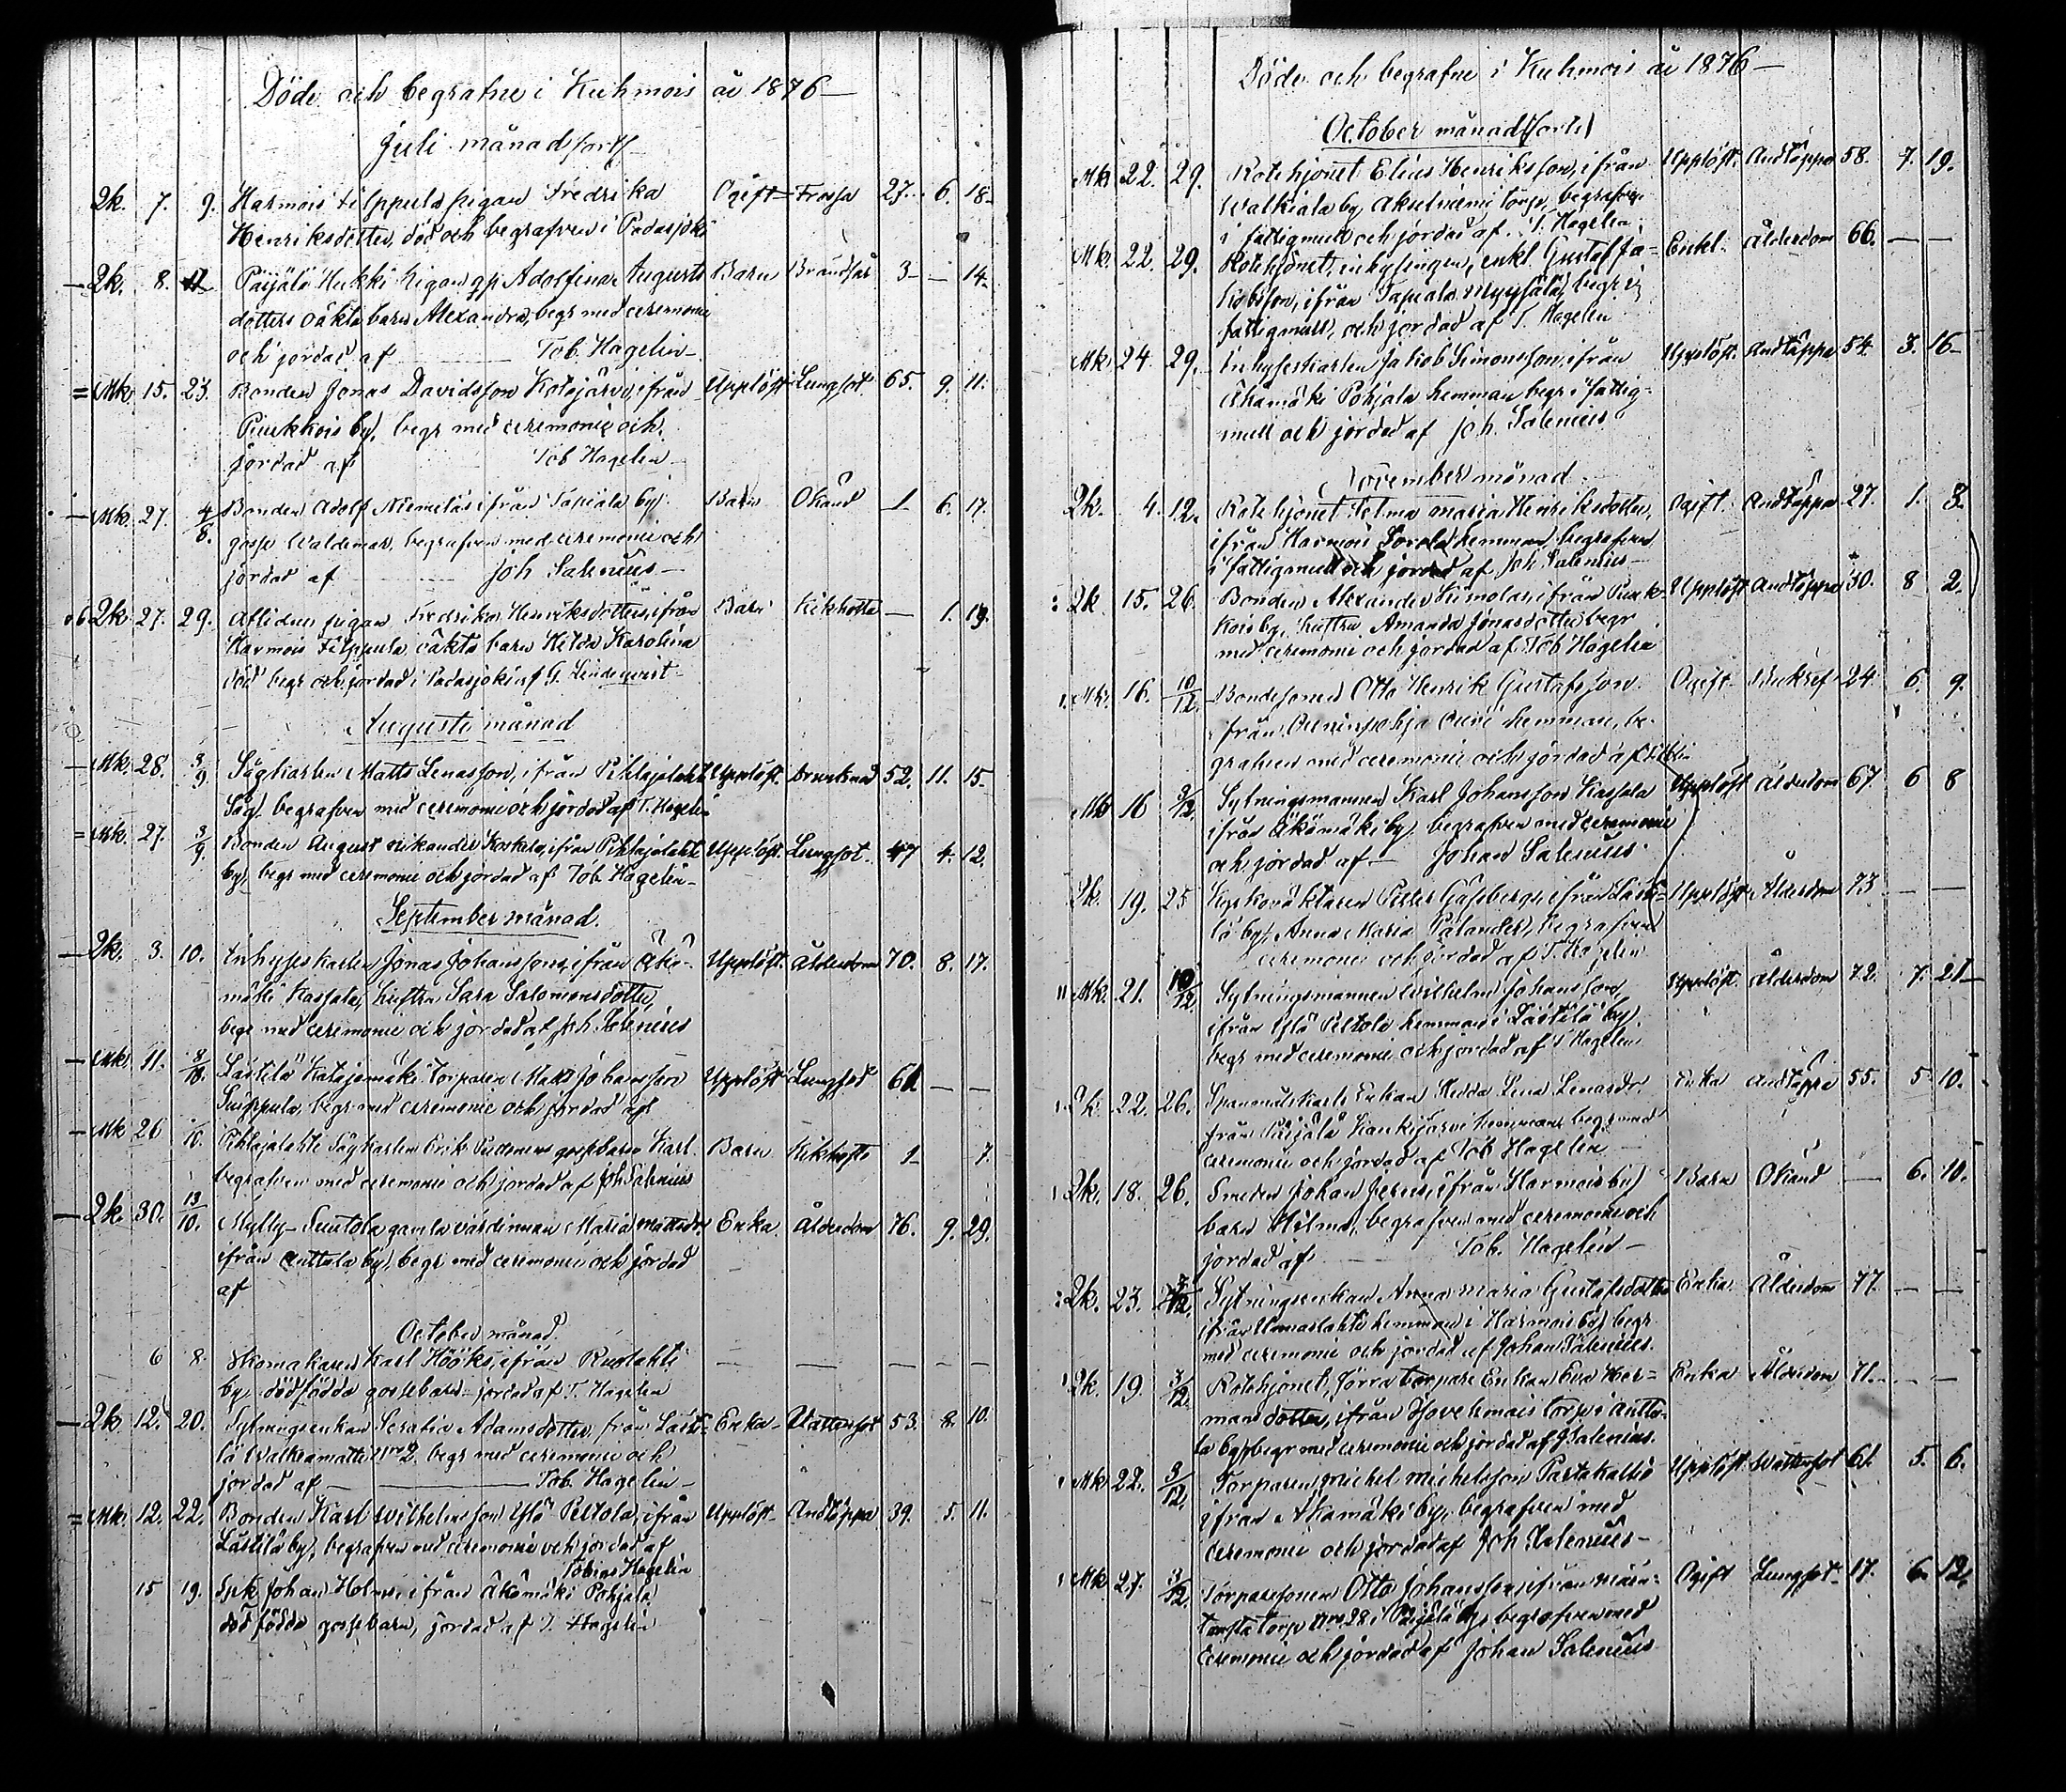 Döde och begrafne i Kuhmois år 1876
Juli månad forts
Qk. 7. 9. Harmois Filppula pigan Fredrika Ogift Frossa 27. 6. 18
Henriksdotter, död och begrafven i Padasjoki
Qk. 8. Päijälä Hukki pigan Adolfina Augusts Barn Brändsår 3 – 14
dotters oäkta barn Alexandra, begr med ceremonie
och jordad af Tob. Hagelin
Mk. 15. 23. Bonden Jonas Davidsson Kotajärvi, ifrån Upplöst Lungsot 65. 9. 11.
Puukkois by, begr med ceremonie och
jordad af Tob Hagelin
Mk. 27. 4/8. Bonden Adolf Niemiläs ifrån Tapiala by Barn Okänd 1 6. 17.
gosse Waldemar, begrafven med ceremonie och
jordad af Joh Salenius
Qk. 27. 29. Aflidne pigan Fredrika Henriksdotters, ifrån Barn Kikhosta – 1. 19.
Harmois Filppula, oäkta barn Hilda Karolina
död begr och jordad i Padasjoki af G. Lindqvist
Augusti månad
Mk. 28. 3/9 Sågkarlen Matts Lenasson, ifrån Pihlajalahti Upplöst. Drunknad 52. 11. 15
Såg, begrafven med ceremonie och jordad af T. Hagelin
Mk. 27. 3/9. Bonden August Koskela, ifrån Pihlajalahti Upplöst. Lungsot. 47 4. 12.
by, begr med ceremonie och jordad af Tob. Hagelin
September månad.
Qk. 3. 10. Inhyseskarlen Jonas Johanssons, ifrån Äkä- Upplöst. Ålderdom 70. 8. 17.
mäki Kassala, hustru Sara Salomonsdotter,
begr med ceremonie och jordad af Joh Salenius
Mk. 11. 8/10. Lästilä Katajamäki torparen Matts Johansson Upplöst Lungsot 61. – –
begr med ceremonie och jordad af
Mk 26 Pihlajalahti Sågkarlen Erik gossbarn Karl Barn Kikhosta 1 7.
begrafven med ceremonie och jordad af Joh Salenius
Qk. 30. 13/10. Mylly- gamla värdinnan Maria Mattsdr. Enka. Ålderdom 76. 9. 29.
ifrån Anttola by, begr med ceremonie och jordad
af
October månad.
6 8. Skomakaren Karl Hööks, ifrån Ruolahti – – – – –
by dödfödda gossebarn jordad af T. Hagelin
Qk. 12. 20. Sytningsenkan Serafia Adamsdotter, från Lästi- Enka Vattusot 53. 8. 10.
lä Walkeamatti No 2. begr med ceremonie och
jordad af Tob. Hagelin
Mk. 12. 22. Bonden Karl Wilhelmsson Ylä Peltola, ifrån Upplöst Andtäppa 39. 5. 11.
Lästilä by, begrafven med ceremonie och jordad af
Tobias Hagelin
15 19. Spk Johan Holms, ifrån Äkämäki Pohjala
dödfödda gossebarn, jordad af T. Hagelin
Döde och begrafne i Kuhmois år 1876
October månad (forts)
Mk 22. 29. Rotehjonet Elias Henriksson, ifrån Upplöst. Andtäppa 58. 7. 19.
Walkiala by torp, begrafven
i fattigmull och jordad af T. Hagelin
Mk. 22. 29. Rotehjonet, inhysingen, enkl. Gustaf Ja- Enkl. Ålderdom 66. – –
kobsson, ifrån Tapiala begr i
fattigmull, och jordad af T. Hagelin
Mk 24. 29. Inhyseskarlen Jakob Simonsson, ifrån Upplöst. Andtäppa 54. 3. 16
Äkämäki Pohjala hemman begr i fattig-
mull och jordad af Joh. Salenius
November månad
Qk. 4. 12. Rotehjonet Selma Maria Henriksdotter, Ogift Andtäppa 27. 1. 3.
ifrån Harmois hemman, begrafven
i fattigmull och jordad af Joh Salenius
Qk. 15. 26. Bonden Alexander ifrån Puuk- Upplöst Andtäppa 30. 8 2.
kois by, hustru Amanda Jonasdotter begr
med ceremonie och jordad af Tob Hagelin
Mk. 16. 10/12. Bondesonen Otto Henrik Gustafsson Ogift 24. 6. 9.
från Ouni hemman, be-
grafven med ceremonie och jordad af
Mk 16 3/12. Sytningsmannen Karl Johansson Kassala Upplöst Ålderdom 67 6 8
ifrån Äkämäki by, begrafven med ceremonie
och jordad af Johan Salenius
Qk. 19. 25 Kyrkoväktaren Peter ifrån Lästi- Upplöst Ålderdom 73 – –
lä by, Anna Maria Palander, begrafven
ceremonie och jordad af T. Hagelin
Mk. 21. 10/12. Sytningsmannen Wilhelm Johansson, Upplöst. Ålderdom 72. 7. 21
ifrån Ylä Peltola hemman i Lästilä by,
begr med ceremonie och jordad af T Hagelin
Qk. 22. 26. Enkan Hedda Lena Lenasdr. Enka Andtäppa 55. 5 10.
från Päijälä hemman begr med
ceremonie och jordad af Tob Hagelin
Qk. 18. 26. Smeden Johan ifrån Harmois by Barn Okänd – 6. 10.
barn Hilma, begrafven med ceremonie och
jordad af Tob. Hagelin
Qk. 23. Sytningsenkan Anna Maria Gustafsdotter Enka. Ålderdom 77. – –
ifrån Unnaslahti hemman i Harmois by begr
med ceremonie och jordad af Johan Salenius.
Qk. 19 3/12. Rotehjonet, förra torpare Enkan Eva Her- Enka Ålderdom 71. – –
mansdotter, ifrån torp i Antto-
la by, begr med ceremonie och jordad af J Salenius.
Mk 22. 3/12. Torparen, Michel Michelsson Partakallio Upplöst Wattusot 61. 5. 6.
ifrån Äkämäki by, begrafven med
ceremonie och jordad af Joh Salenius
Mk 27. 3/12. Torparesonen Otto Johansson, ifrån Ogift Lungsot 17. 6. 12.
torp No 28 i Päijälä by, begrafven med
Ceremonie och jordad af Johan Salenius